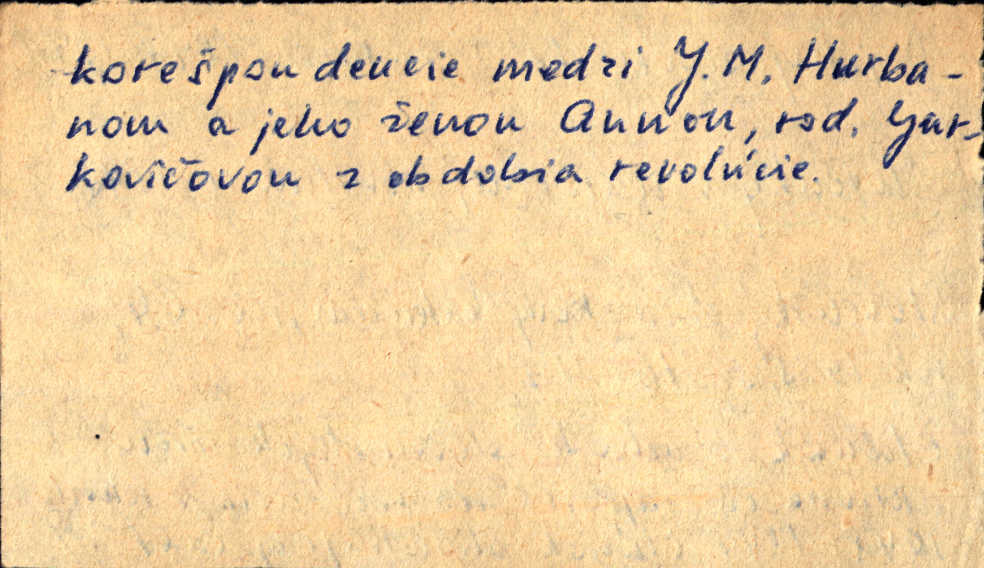 korešpondencie medzi J. M. Hurba-
nom a jeho ženou Annou, rod. Jur-
kovičovou z obdobia revolúcie.